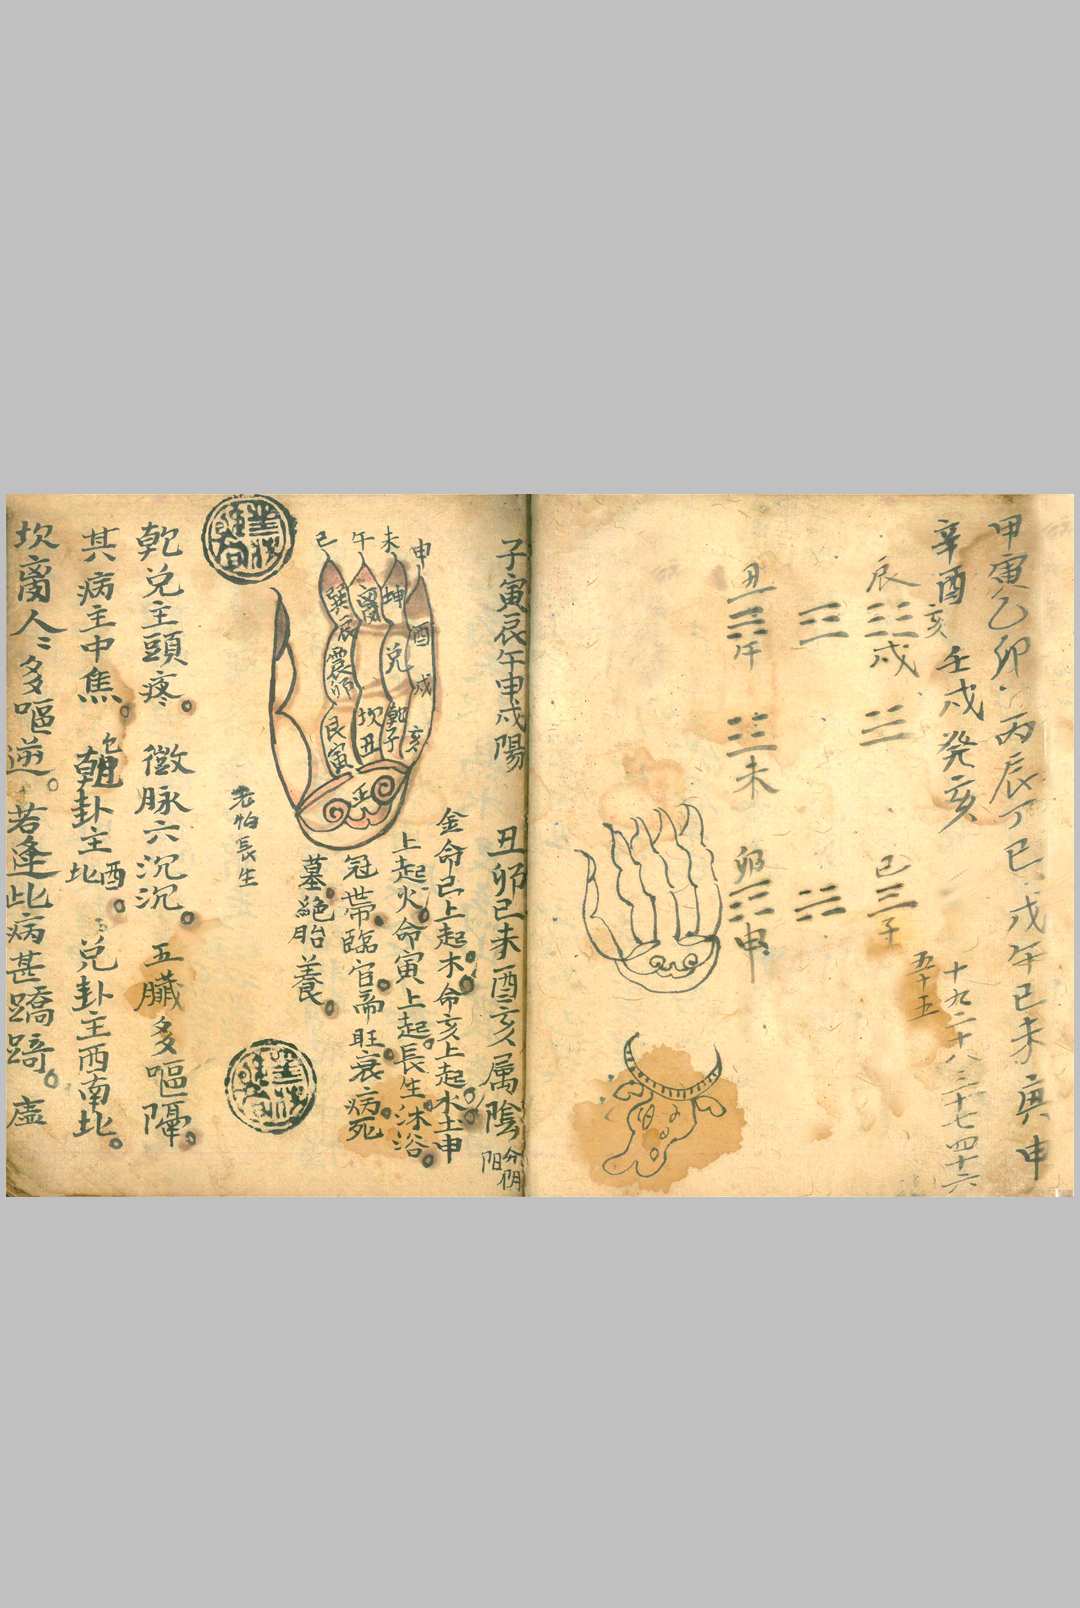 甲寅乙卯丙辰丁巳戊午己未庚申
辛酉亥壬戌癸亥
十九二十八三十七四十六
五十五
辰
戌
巳
子
丑
午
未
卯
申
子寅辰午申戌陽
丑卯巳未酉亥属陰
分阴
阳
金命巳上起木命亥上起水土申
上起火命寅上起長生沐浴
冠带臨官帝旺衰病死
墓絕胎養
老怕長生
巳午未申
巽離坤酉
辰兌戌
震卯乾子亥
艮寅坎丑
乾兌主頭疼
徵脉六沉沉
五臟多嘔隔
其病主中焦
卦主
酉北
兌卦主西南北
坎离人〻多嘔逆
若逢此病甚蹺踦
虛